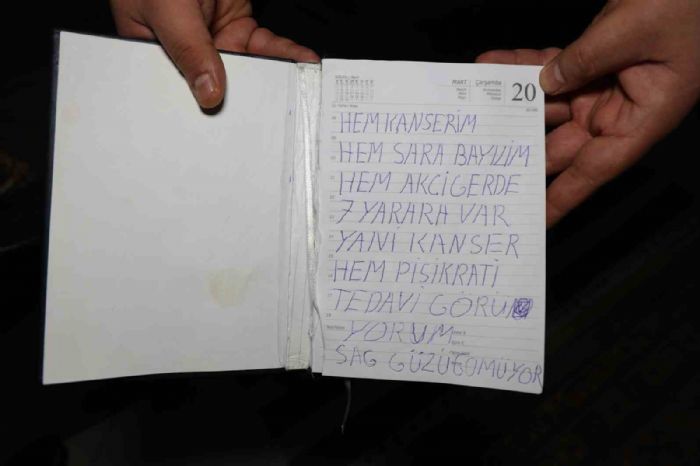 MART Çarşamba
20
HEM KANSERİM
HEM SARA BAYILIM
HEM AKCİGERDE
7 YARARA VAR
YANİ KANSER
HEM PİSİKRATİ
TEDAVİ GÖRÜ
YORUM
SAG GÜZÜGÖMÜYOR